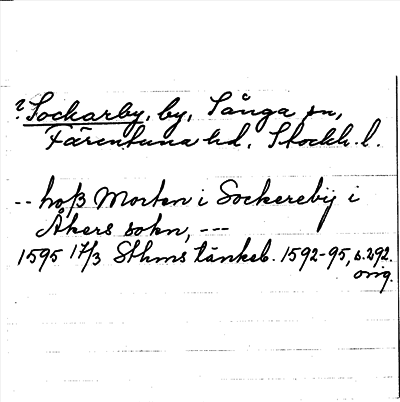 ? Sockarby, by, Sånga sn,
Färentuna hd, Stockh. l.
-- hoß Morten i Sockereby i
Åkers sokn, ---
1595 17/3 Sthms tänkeb. 1592-95, s. 292.
orig.